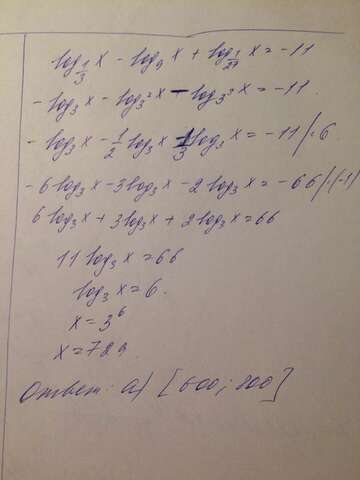 log_{1/3} x - log_9 x + log_{1/27} x = -11
- log_3 x - log_{3^2} x - log_{3^3} x = -11
- log_3 x - 1/2 log_3 x - 1/3 log_3 x = -11 / · 6
- 6 log_3 x - 3 log_3 x - 2 log_3 x = -66 / · (-1)
6 log_3 x + 3 log_3 x + 2 log_3 x = 66
11 log_3 x = 66
log_3 x = 6.
x = 3^6
x = 729
Ответ: а) [600; 800]